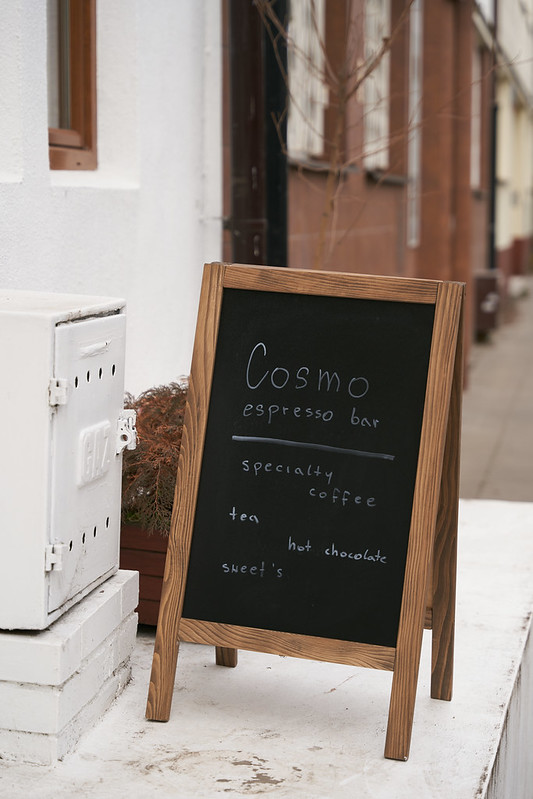 Cosmo
espresso bar
specialty
coffee
tea
hot chocolate
sweet's